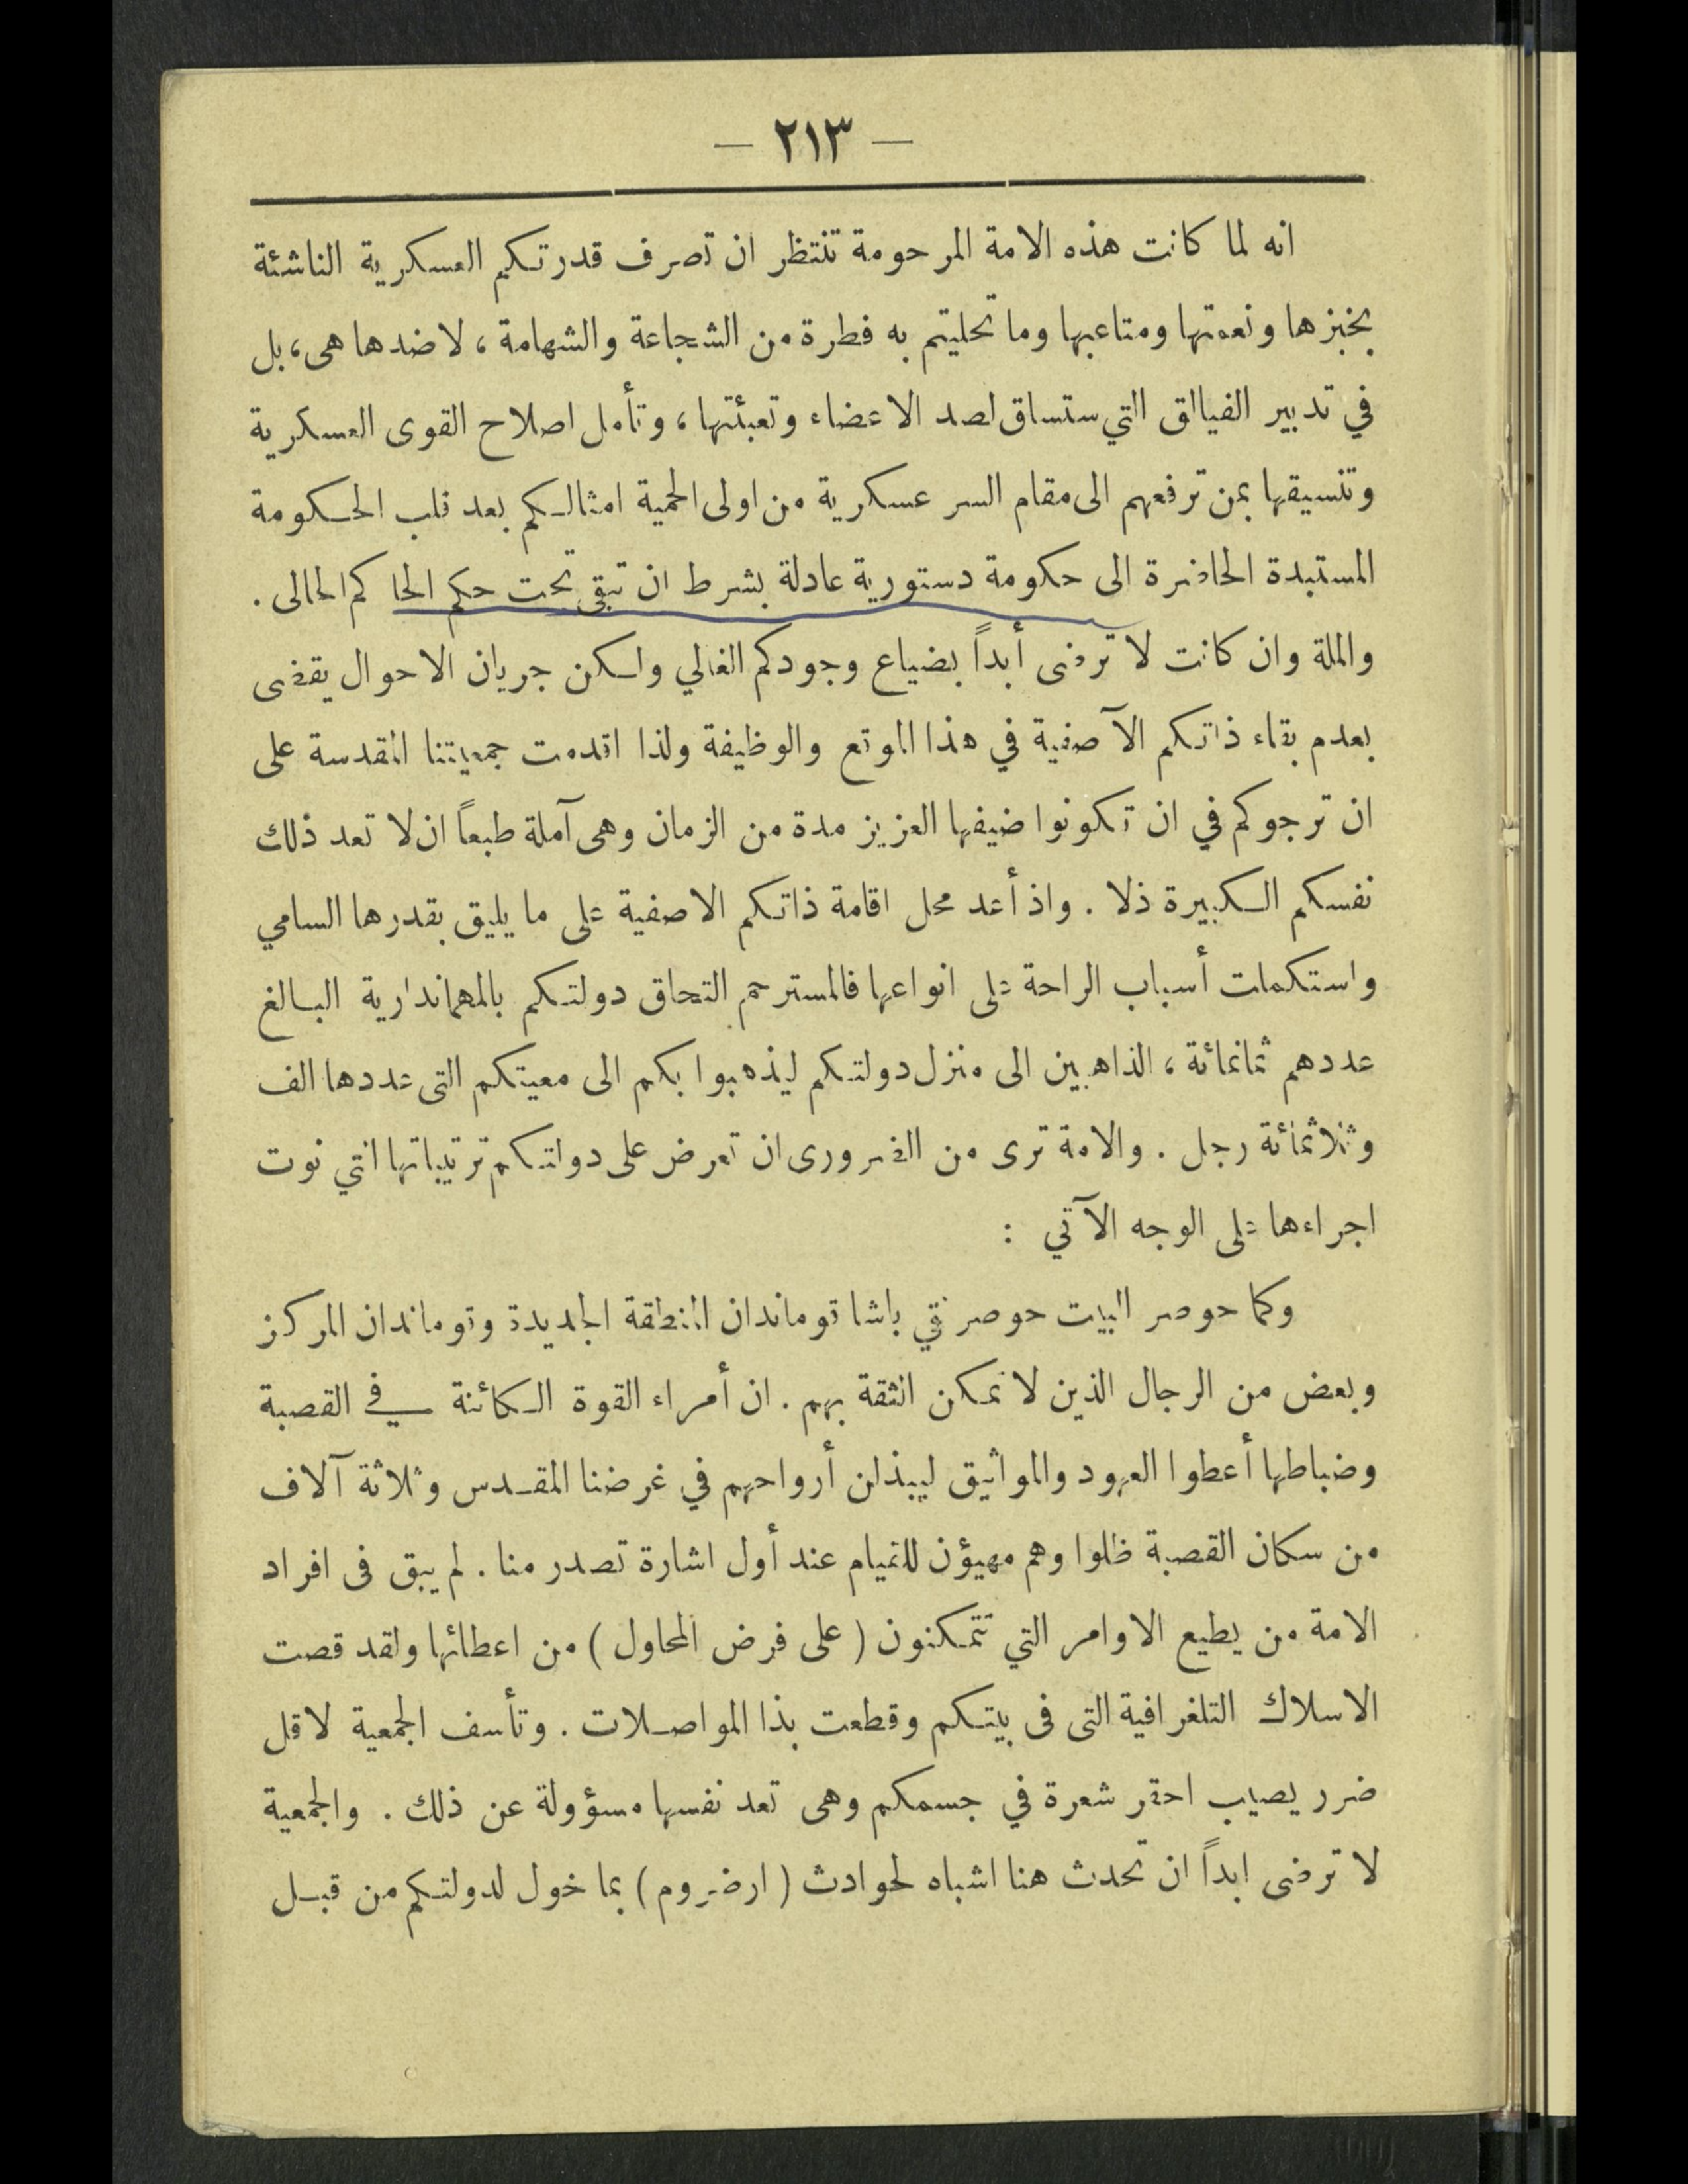 — ٢١٣ —
انه لما كانت هذه الامة المرحومة تنتظر ان تصرف قدرتكم العسكرية الناشئة
بخبزها ونعمتها ومتاعبها وما تحليتم به فطرة من الشجاعة والشهامة ، لا ضدها هى ، بل
في تدبير الفيالق التي ستساق لصد الاعضاء وتعبئتها ، وتأمل اصلاح القوى العسكرية
وتنسيقها بمن ترفعهم الى مقام السر عسكرية من اولى الحمية امثالكم بعد قلب الحكومة
المستبدة الحاضرة الى حكومة دستورية عادلة بشرط ان تبقى تحت حكم الحاكم الحالى .
والملة وان كانت لا ترضى أبداً بضياع وجودكم الغالي ولكن جريان الاحوال يقضى
بعدم بقاء ذاتكم الآصفية في هذا الموقع والوظيفة ولذا اقدمت جمعيتنا المقدسة على
ان ترجوكم في ان تكونوا ضيفها العزيز مدة من الزمان وهى آملة طبعاً ان لا تعد ذلك
نفسكم الكبيرة ذلا . واذ أعد محل اقامة ذاتكم الاصفية على ما يليق بقدرها السامي
واستكملت أسباب الراحة على انواعها فالمسترحم التحاق دولتكم بالمهماندارية البالغ
عددهم ثمانمائة ، الذاهبين الى منزل دولتكم ليذهبوا بكم الى معيتكم التى عددها الف
وثلاثمائة رجل . والامة ترى من الضرورى ان تعرض على دولتكم ترتيباتها التي نوت
اجراءها على الوجه الآتي :
وكما حوصر البيت حوصر نقي باشا قوماندان المنطقة الجديدة وقوماندان المركز
وبعض من الرجال الذين لا تمكن الثقة بهم . ان أمراء القوة الكائنة في القصبة
وضباطها أعطوا العهود والمواثيق ليبذلن أرواحهم في غرضنا المقدس وثلاثة آلاف
من سكان القصبة ظلوا وهم مهيؤن للقيام عند أول اشارة تصدر منا . لم يبق فى افراد
الامة من يطيع الاوامر التي تتمكنون ( على فرض المحاول ) من اعطائها ولقد قصت
الاسلاك التلغرافية التى فى بيتكم وقطعت بذا المواصلات . وتأسف الجمعية لاقل
ضرر يصيب احقر شعرة في جسمكم وهى تعد نفسها مسؤولة عن ذلك . والجمعية
لا ترضى ابداً ان تحدث هنا اشباه لحوادث ( ارضروم ) بما خول لدولتكم من قبل